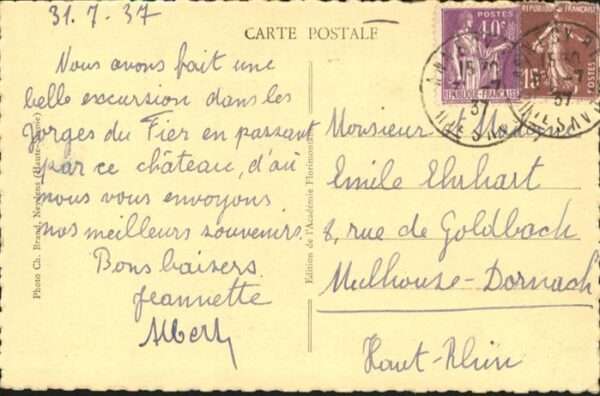 31.7-37
CARTE POSTALE
Nous avons fait une
belle excursion dans les
Gorges du Fier en passant
par ce château, d'où
nous vous envoyons
nos meilleurs souvenirs.
Bons baisers.
Jeannette
Albert
Photo Ch. Brand, (Haute-Savoie)
Edition de l'Académie Florimontane
POSTES
40c
REPUBLIQUE-FRANÇAISE
REPUBLIQUE FRANÇAISE
15c
POSTES
37
37
Monsieur et Madame
Emile Ehrhart
8, rue de Goldbach
Mulhouse-Dornach
Haut-Rhin